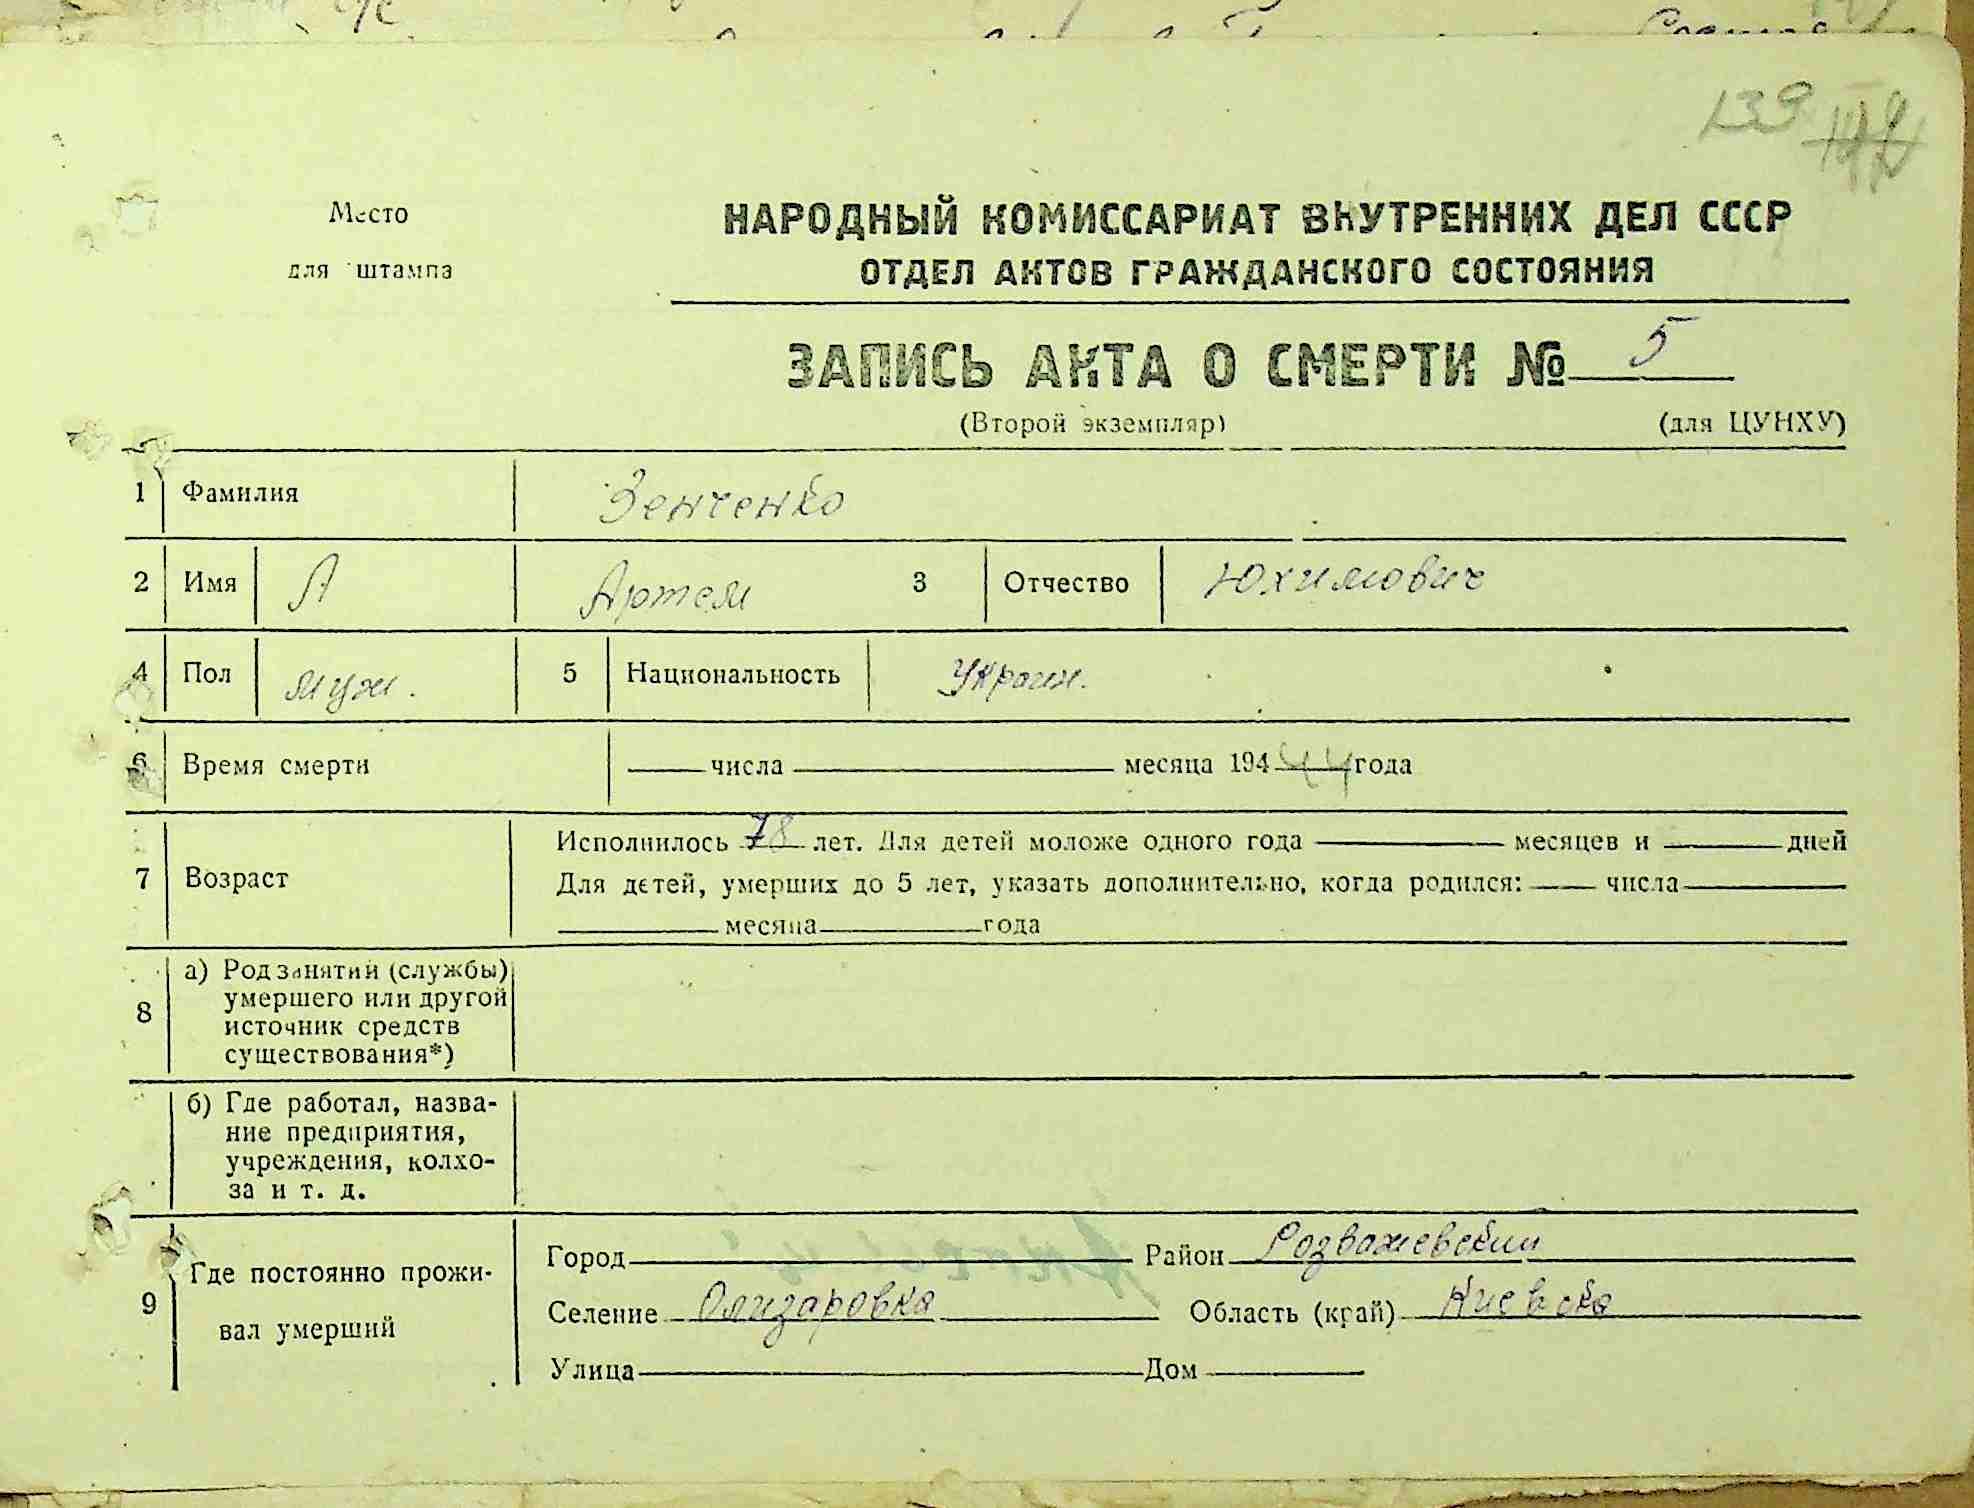 139 142
Место
для штампа
НАРОДНЫЙ КОМИССАРИАТ ВНУТРЕННИХ ДЕЛ СССР
ОТДЕЛ АКТОВ ГРАЖДАНСКОГО СОСТОЯНИЯ
ЗАПИСЬ АКТА О СМЕРТИ № 5
(Второй экземпляр) (для ЦУНХУ)
1 Фамилия Зенченко
2 Имя А Артем 3 Отчество Юхимович
4 Пол муж. 5 Национальность Украин.
6 Время смерти числа месяца 194 44 года
7 Возраст
Исполнилось 78 лет. Для детей моложе одного года месяцев и дней
Для детей, умерших до 5 лет, указать дополнительно, когда родился: числа
месяца года
8 а) Род занятий (службы)
умершего или другой
источник средств
существования*)
б) Где работал, назва-
ние предприятия,
учреждения, колхо-
за и т. д.
9 Где постоянно прожи-
вал умерший
Город Район Розважевский
Селение Олизаровка Область (край) Киевска
Улица Дом